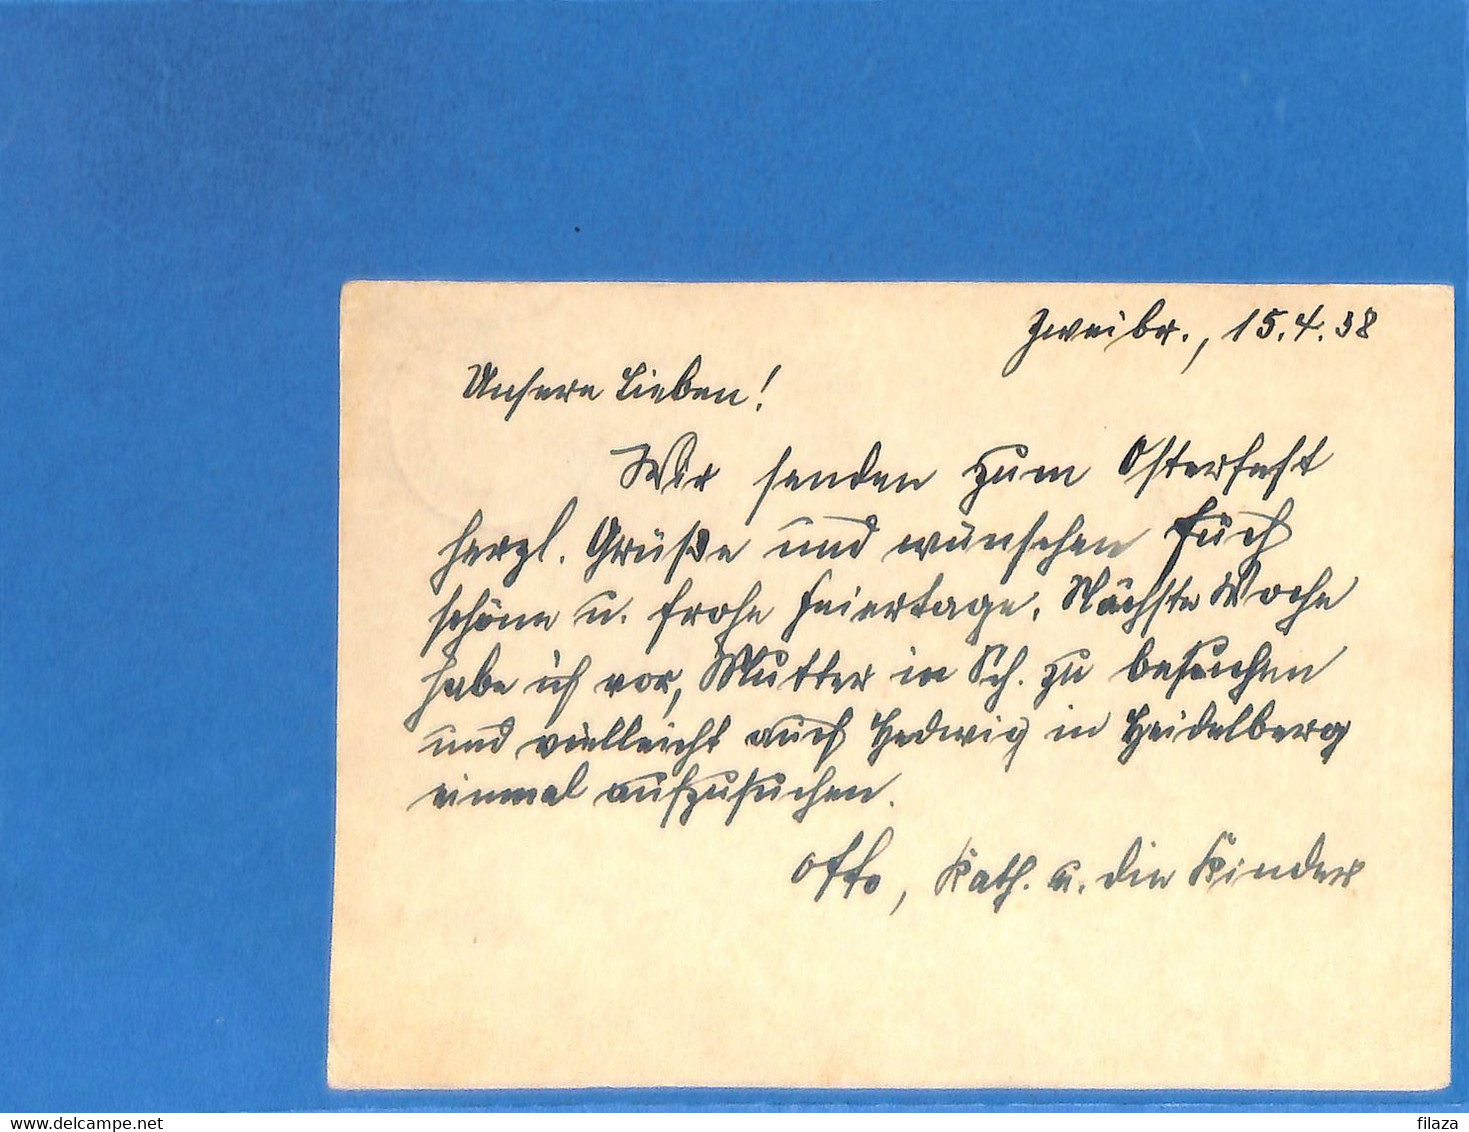 Zweibr., 15.4.38
Unsere Lieben!
Wir senden zum Osterfest
herzl. Grüße und wünschen Euch
schöne u. frohe Feiertage. Nächste Woche
habe ich vor, Mutter in Sch. zu besuchen
und vielleicht auch Hedwig in Heidelberg
einmal aufzusuchen.
Otto, Kath. u. die Kinder
delcampe.net
filaza